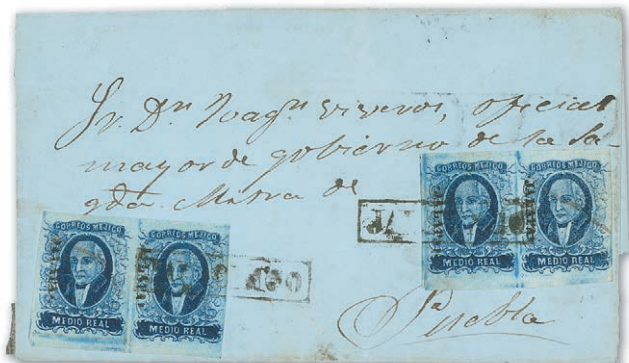 Sr. Dn. Joaqn. Viveros, oficial
mayor de gobierno de la Sa-
gda. Mitra de
Puebla
CORREOS MEJICO
MEDIO REAL
CORREOS MEJICO
MEDIO REAL
CORREOS MEJICO
MEDIO REAL
CORREOS MEJICO
MEDIO REAL